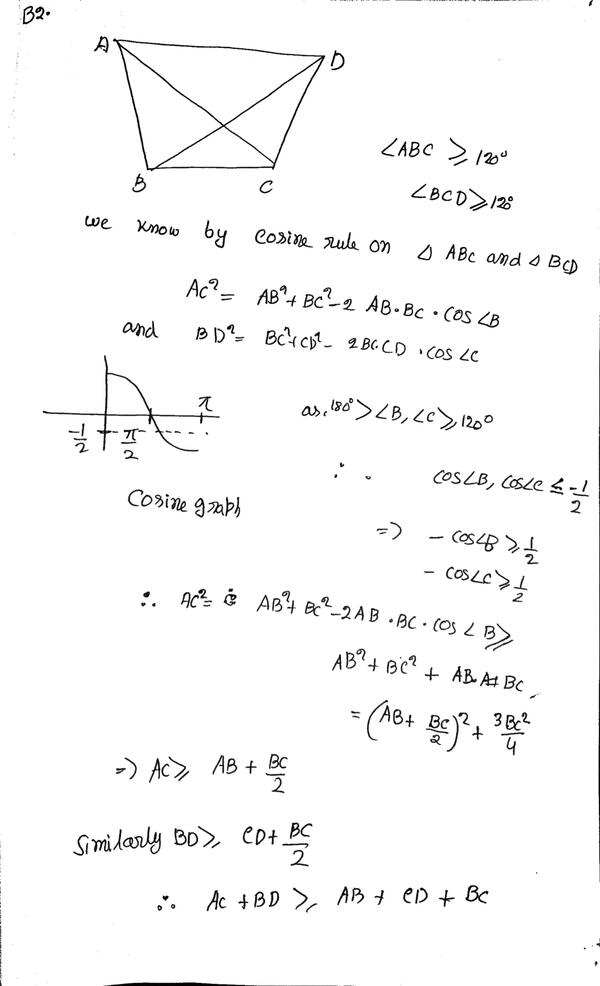 B2.
A
D
B
C
∠ABC ≥ 120°
∠BCD ≥ 120°
we know by cosine rule on △ ABC and △ BCD
AC² = AB² + BC² - 2 AB·BC · cos∠B
and BD² = BC² + CD² - 2BC·CD · cos∠C
π
-1/2
π/2
as, 180° > ∠B, ∠C ≥ 120°
∴ cos∠B, cos∠C ≤ -1/2
Cosine graph
=> - cos∠B ≥ 1/2
- cos∠C ≥ 1/2
∴ AC² = AB² + BC² - 2AB · BC · cos∠B ≥
AB² + BC² + AB· BC
= (AB + BC/2)² + 3BC²/4
=> AC ≥ AB + BC/2
Similarly BD ≥ CD + BC/2
∴ AC + BD ≥ AB + CD + BC